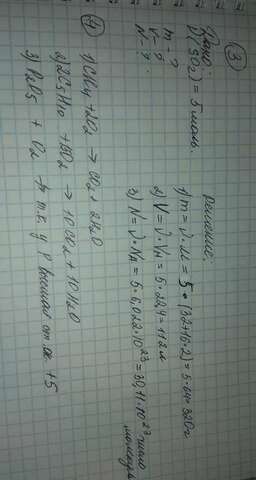 ③
Дано:
ν(SO₂) = 5 моль.
m - ?
V - ?
N - ?
Решение:
1) m = ν · M = 5 · (32+16·2) = 5·64 = 320г
2) V = ν · Vм = 5 · 22,4 = 112 л
3) N = ν · NA = 5 · 6,022·10²³ = 30,11·10²³ число
молекул
④
1) CH₄ + 2O₂ → CO₂ + 2H₂O
2) 2C₅H₁₀ + 15O₂ → 10CO₂ + 10H₂O
3) P₂O₅ + O₂ ↛ т.к у P высшая ст.ок. +5